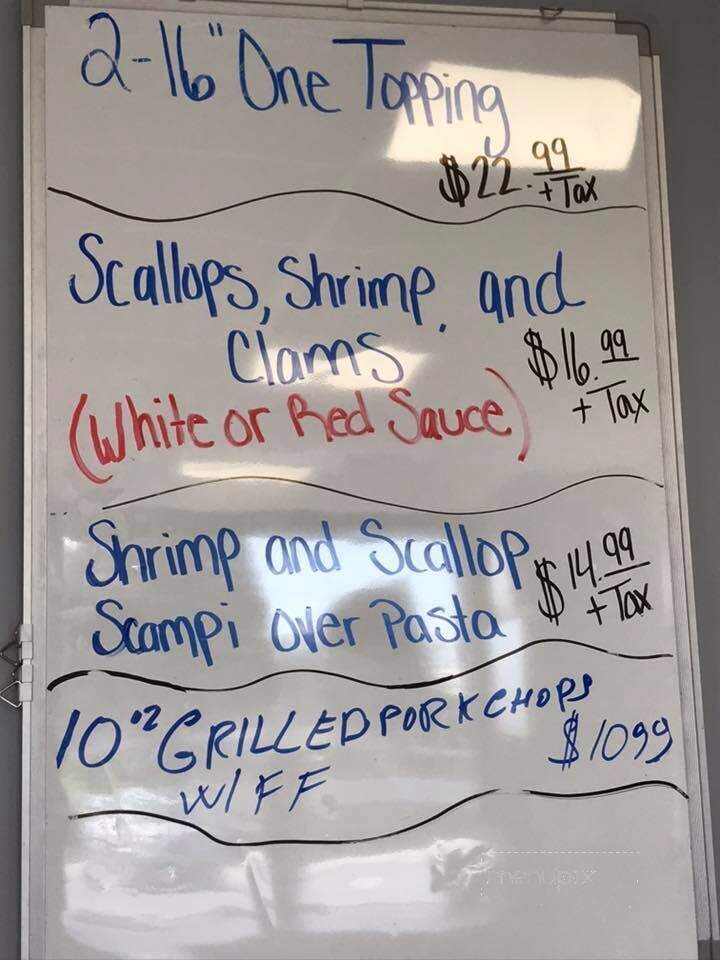 2-16" One Topping
$22.99
+ Tax
Scallops, Shrimp, and
Clams
$16.99
+ Tax
(White or Red Sauce)
Shrimp and Scallop
Scampi over Pasta
$14.99
+ Tax
10 oz GRILLED PORK CHOPS
$1099
W/ FF
menupix